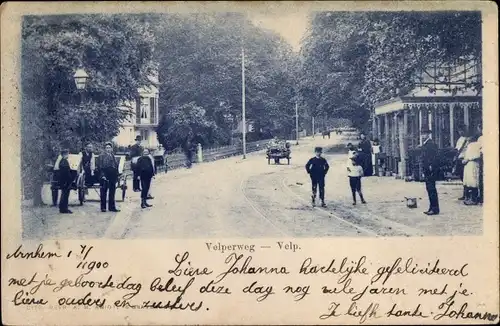 Velperweg — Velp.
Arnhem 1 7/1900
Liere Johanna hartelijke gefeliciteerd
met je geboortedag beleef deze dag nog vele jaren met je
lieve ouders en zusters. Je liefh tante Johanna